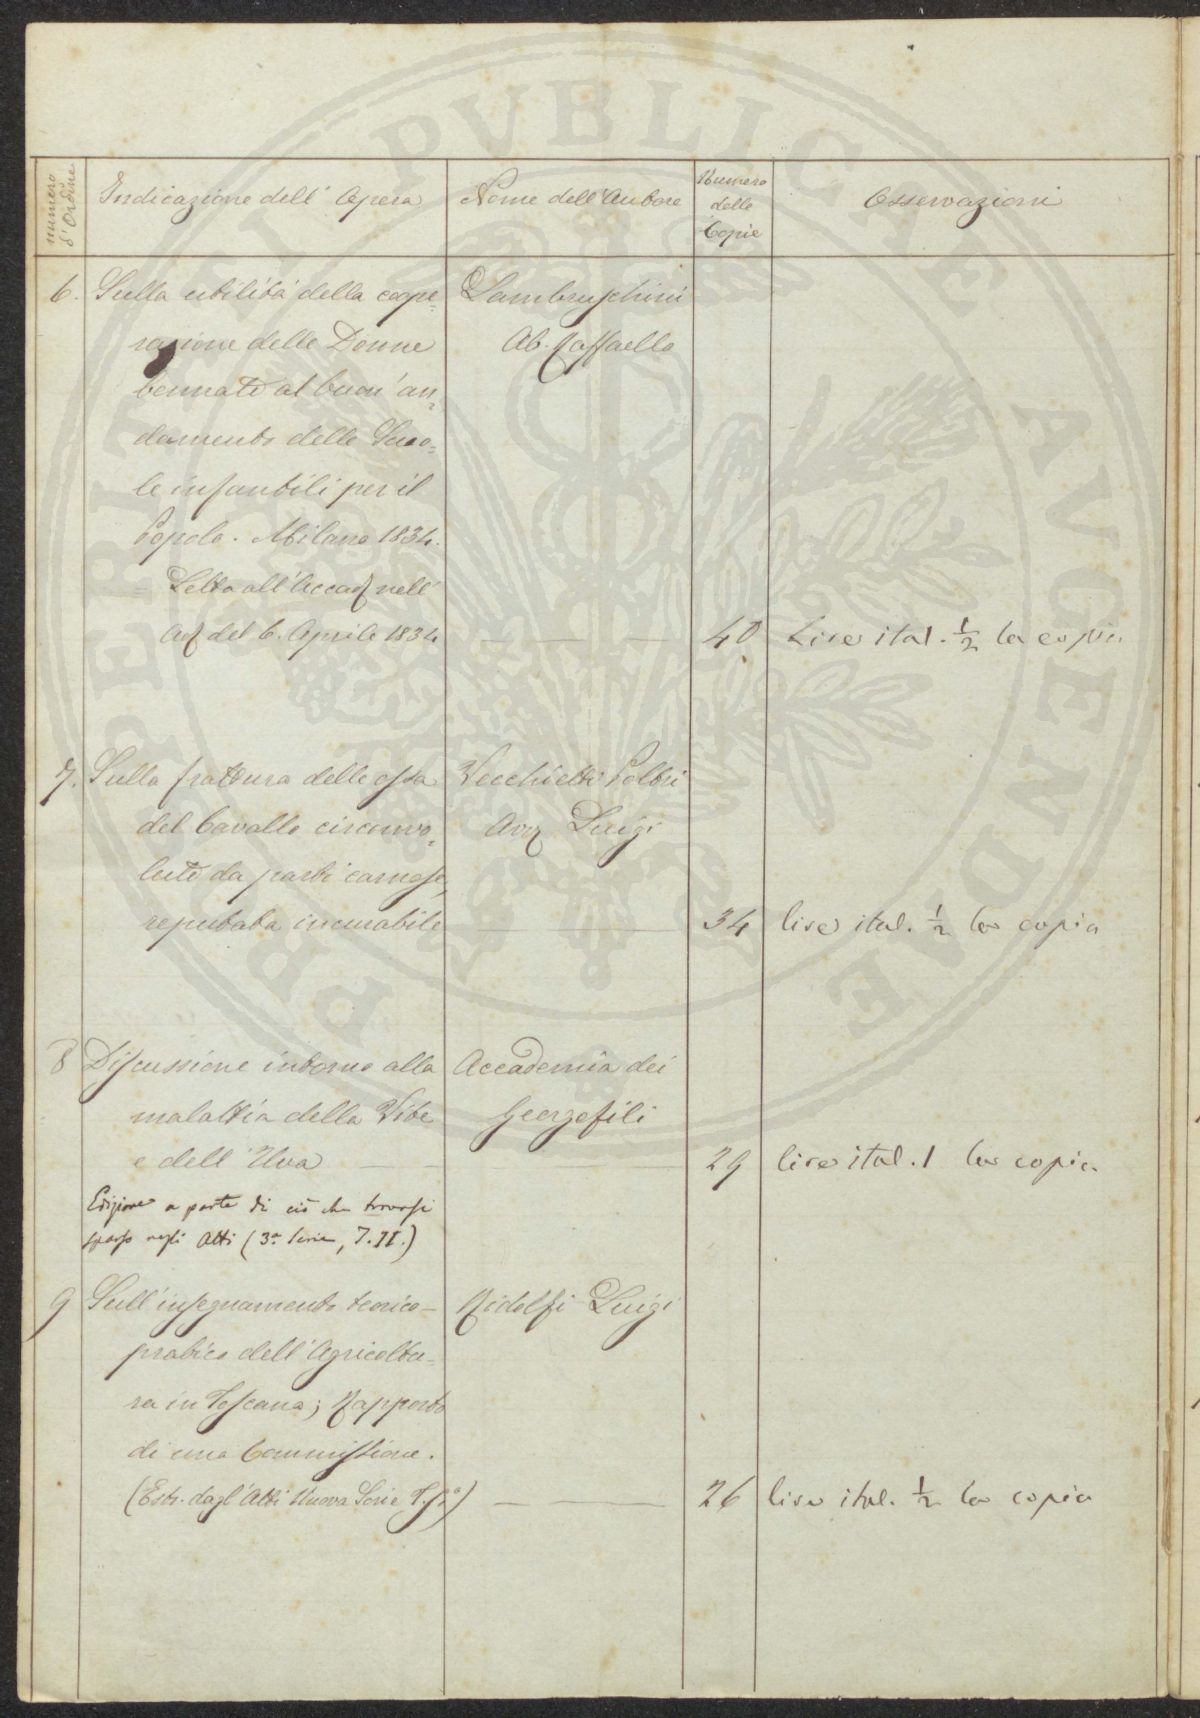 numero d'Ordine
Indicazione dell' Opera
Nome dell'Autore
Numero delle Copie
Osservazioni
6. Sulla utilità della coope=
Lambruschini
razione delle Donne
Ab. Raffaello
bennate al buon'an=
damento delle Scuo=
le infantili per il
Popolo. Milano 1834.
= Letta all'Accad nell'
del 6. Aprile 1834
40
Lire ital. ½ la copia
7. Sulla frattura delle ossa
Vecchietti Poltri
del Cavallo circonvo=
Luigi
lute da parti carnose,
reputata incurabile
34
lire ital. ½ la copia
8 Discussione intorno alla
Accademia dei
malattia della Vite
Georgofili
e dell' Uva
29
lire ital. 1 la copia
Edizione a parte di ciò che trovasi
sparso negli Atti (3ª Serie, T. II.)
9 Sull'insegnamento teorico-
Ridolfi Luigi
pratico dell' Agricoltu=
ra in Toscana; Rapporto
di una Commissione.
(Estr. dagl' Atti Nuova Serie
26
lire ital. ½ la copia
PROSPERITATI PVBLICAE AVGENDAE